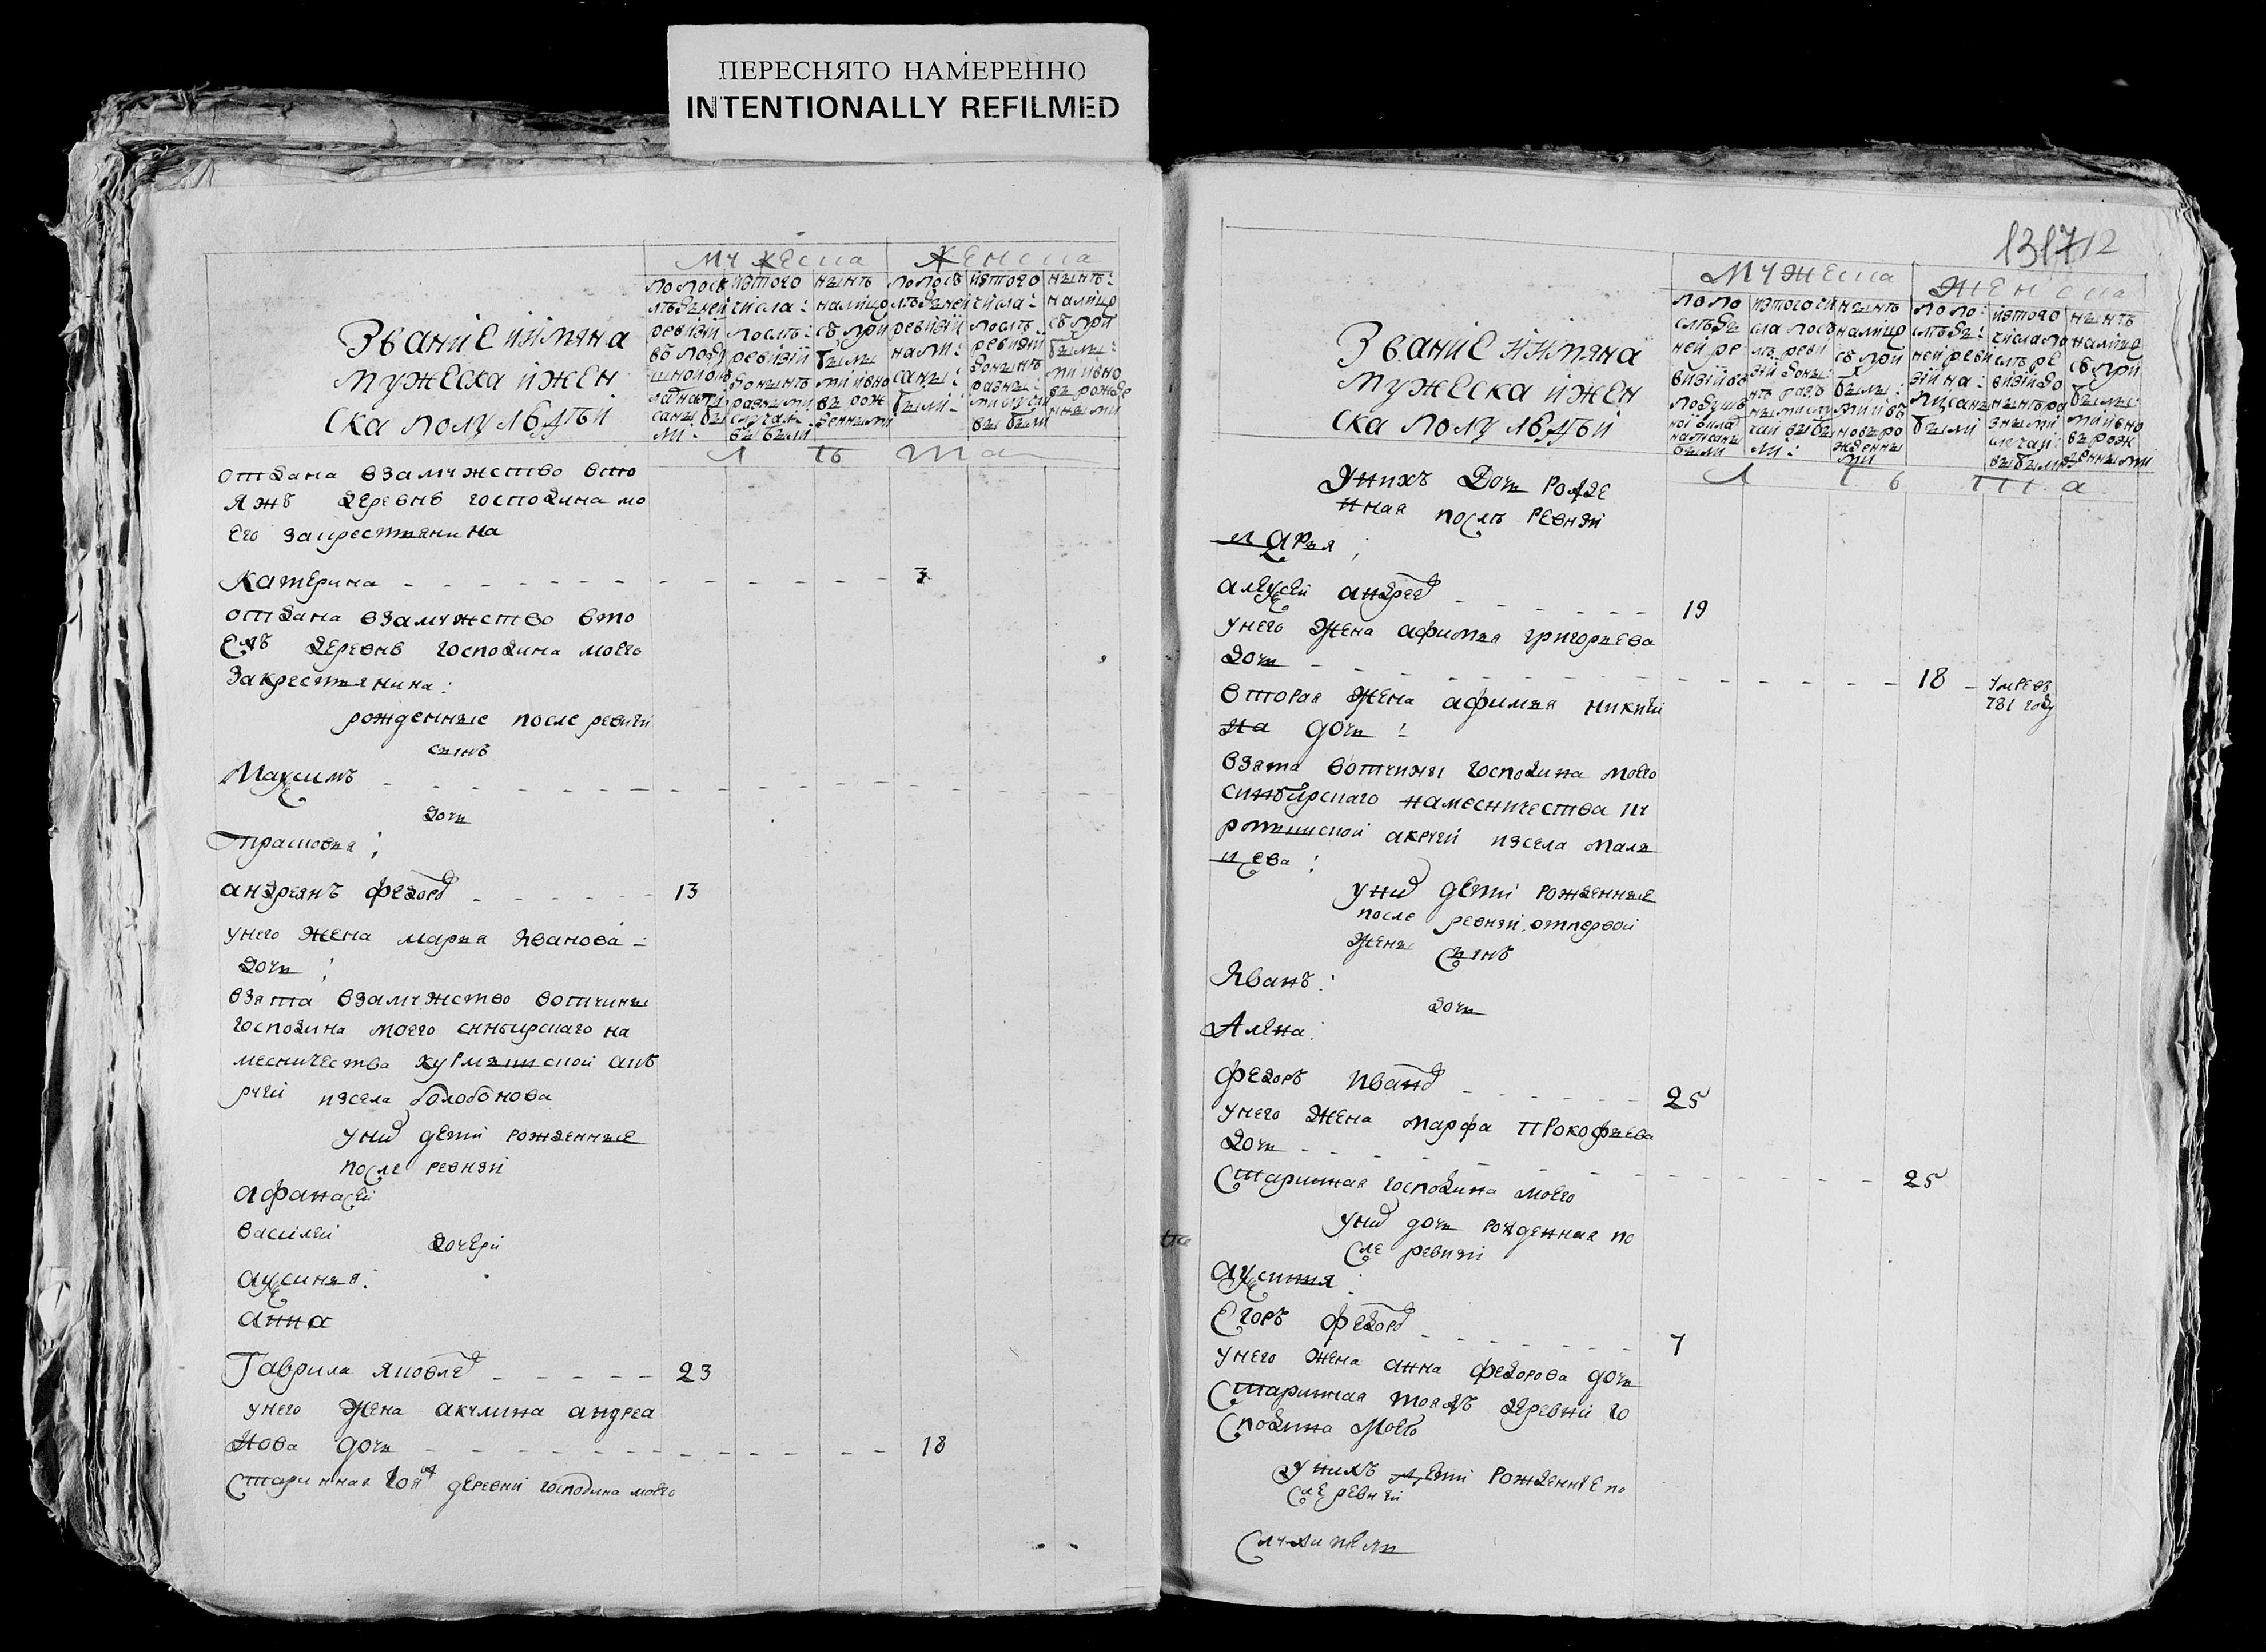 ПЕРЕСНЯТО НАМЕРЕННО
INTENTIONALLY REFILMED
мужеска
женска
Званіе иимяна
мужеска ижен
ска полу людѣй
по послѣдней ревизіи въ подушной оклад написаны были
изтого числа: послѣ: ревизіи до нынѣ разными случаи выбыли
нынѣ налицо съ прибылыми ивновь рожденными
по послѣдней ревизіи написаны: были:
изтого числа: послѣ ревизіи донынѣ разны: ми случаи выбыли
нынѣ: налицо съ прибылы: ми ивновь рожденными
лѣта
отдана взамужство вто
яжъ деревнѣ господина мо
его закрестьянина
Катерина 3
отдана взамужство вто
елъ деревнѣ господина моего
закрестьянина:
рожденные после ревизіи
сынъ
Максимъ
дочь
Прасковья;
андреянъ федоров 13
унего жена марья иванова
дочь:
взята взамужство вотчины
господина моего синбирскаго на
месничества курмышской акъ
руги изсела болобонова
уних дети рожденные
после ревизіи
афанасеи
василеи
дочери
аксинья:
анна
Гаврила яковлев 23
унего жена акулина андреа
нова дочь 18
старинная тоя ж деревни господина моего
131712
мужеска
женска
Званіе иимяна
мужеска ижен
ска полу людѣй
попослѣдней ревизіи въ подушной оклад написаны были
изтого числа послѣ ревизіи донынѣ разными случаи выбыли:
нынѣ налицо съ прибылы: ми ивновь рожденными
попо: слѣдъ: ней ревизіи на: писаны были
изтого числа послѣ ревизіи донынѣ разными случаи: выбыли:
нынѣ налицо съ прибылы: ми ивновь рожденными
лѣта
Унихъ дочь рожде
нная послѣ ревизіи
дарья;
алексеи андреев 19
унего жена афимья григорьева
дочь 18 умре въ
781 году
вторая жена афимья никити
на дочь:
взята вотчины господина моего
синбирскаго намесничества ку
рмышской акруги изсела маль
цева:
уних дети рожденные
после ревизіи отпервой
жены сынъ
Иванъ:
дочь
Алена:
федоръ иванов 25
унего жена марфа прокофьева
дочь 25
старинная господина моего
уних дочь рожденная по
сле ревизіи
аксинья:
Егоръ федоров 7
унего жена анна федорова дочь
старинная тояжъ деревни го
сподина моего
унихъ дети рожденные по
сле ревизіи